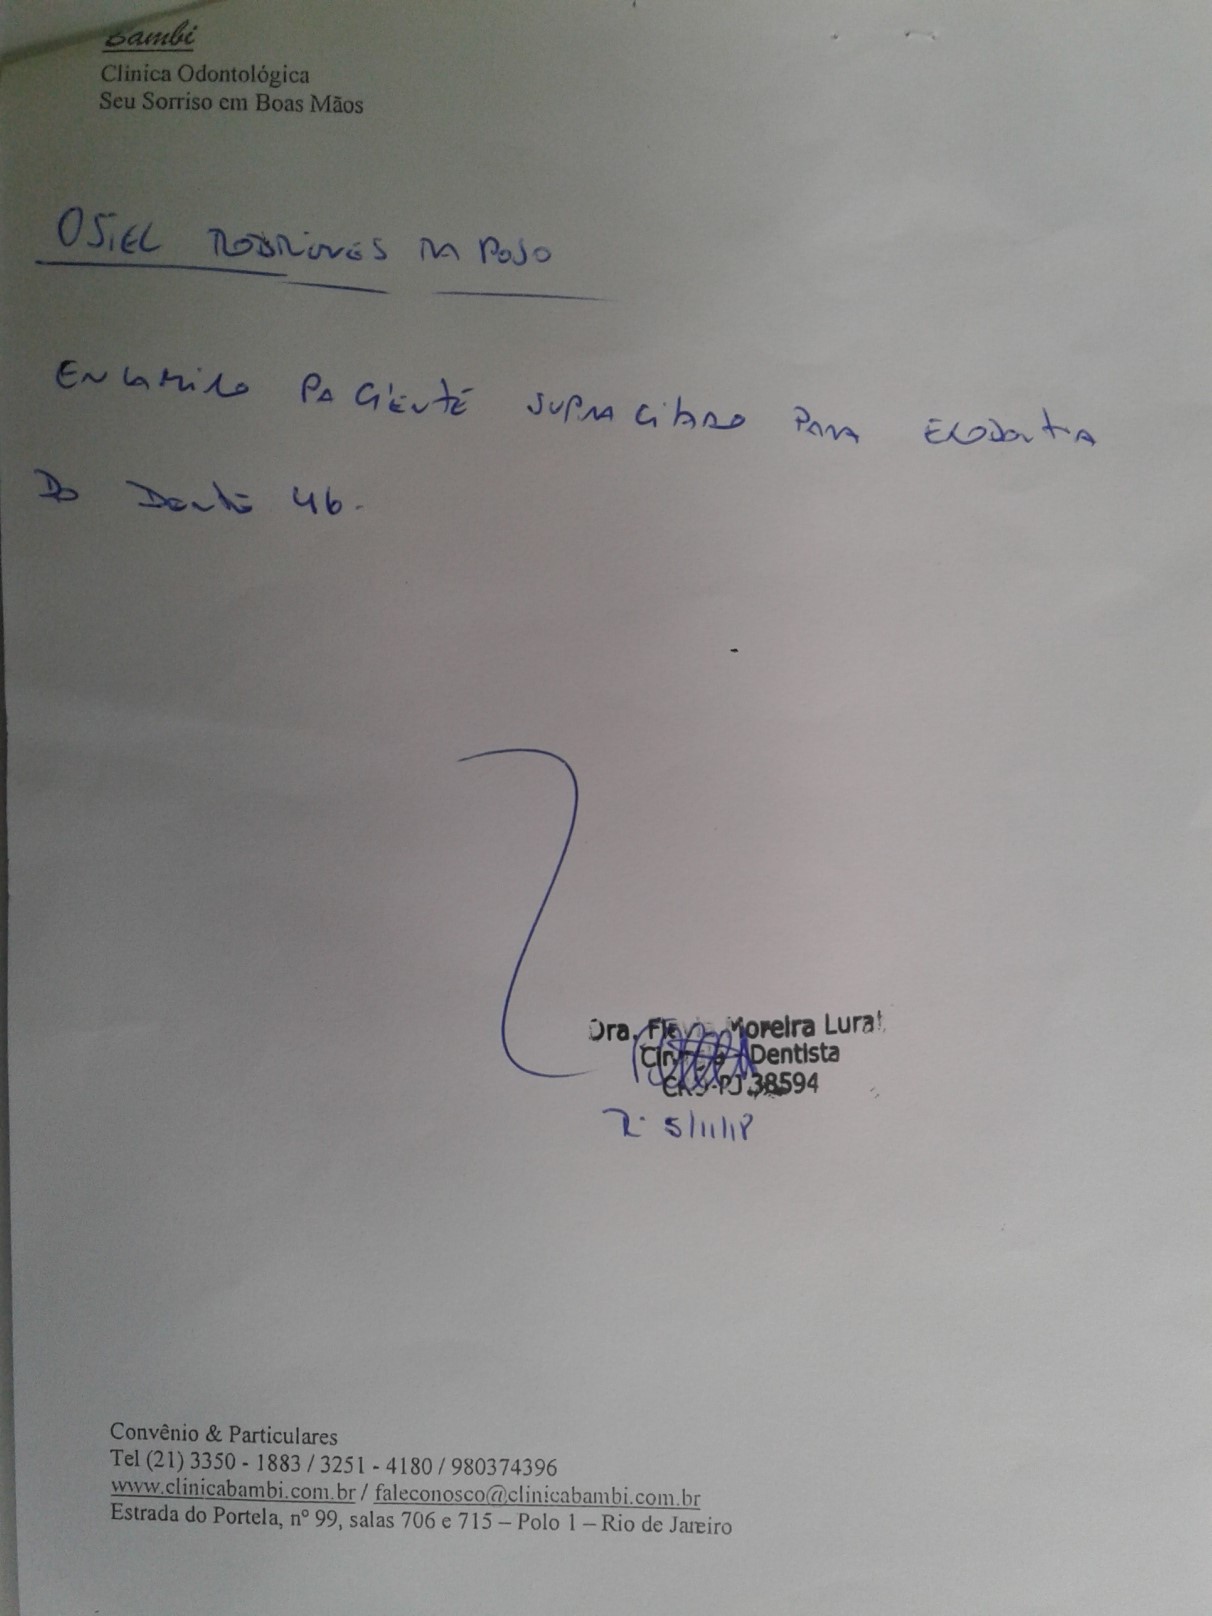 Bambi
Clinica Odontológica
Seu Sorriso em Boas Mãos
OSIEL RODRIGUES RAPOSO
ENCAMINHO PACIENTE SUPRACITADO PARA EXODONTIA
DO DENTE 46.
Dra. Moreira
Dentista
38594
5/11/18
Convênio & Particulares
Tel (21) 3350 - 1883 / 3251 - 4180 / 980374396
www.clinicabambi.com.br / faleconosco@clinicabambi.com.br
Estrada do Portela, nº 99, salas 706 e 715 – Polo 1 – Rio de Janeiro